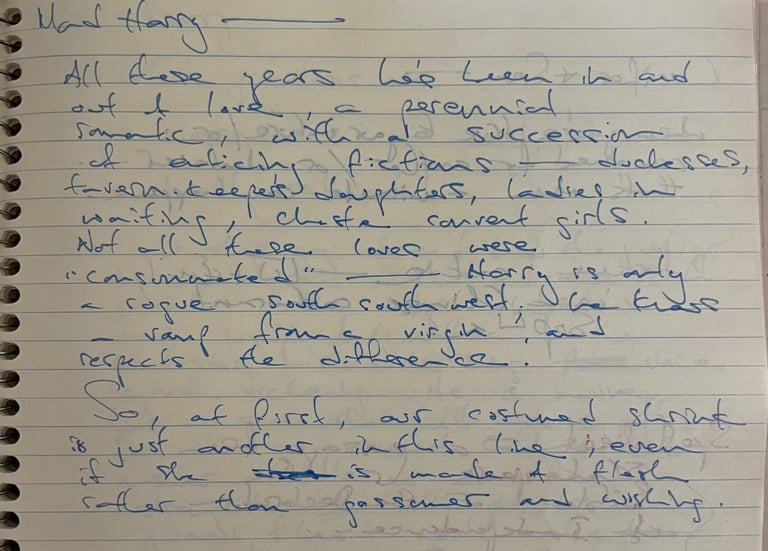 Mad Harry
All these years he's been in and
out of love, a perennial
romantic, with a succession
of enticing fictions — duchesses,
tavern-keepers' daughters, ladies in
waiting, chaste convent girls.
Not all these loves were
"consummated" — Harry is only
a rogue south south west; he knows
a vamp from a virgin, and
respects the difference.
So, at first, our costumed shrink
is just another in this line, even
if she is made of flesh
rather than gossamer and wishing.